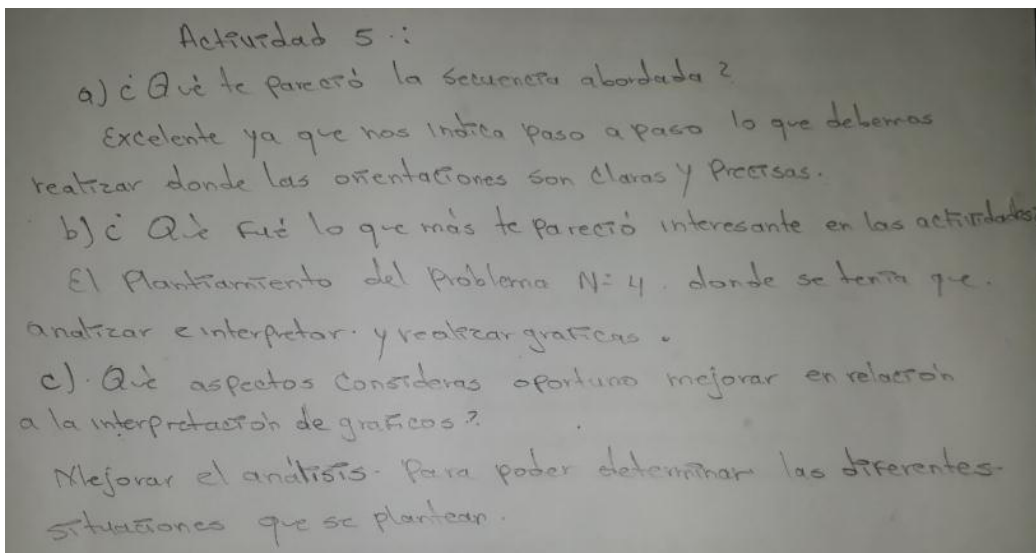 Actividad 5.:
a) ¿Qué te pareció la secuencia abordada?
Excelente ya que nos indica paso a paso lo que debemos
realizar donde las orientaciones son claras y Precisas.
b) ¿Qué Fué lo que más te Pareció interesante en las actividades?
El Plantiamiento del Problema N=4. donde se tenia que.
analizar e interpretar. y realizar graficas.
c). Qué aspectos Consideras oportuno mejorar en relación
a la interpretación de graficos?
Mejorar el análisis. Para poder determinar las diferentes
situaciones que se plantean.